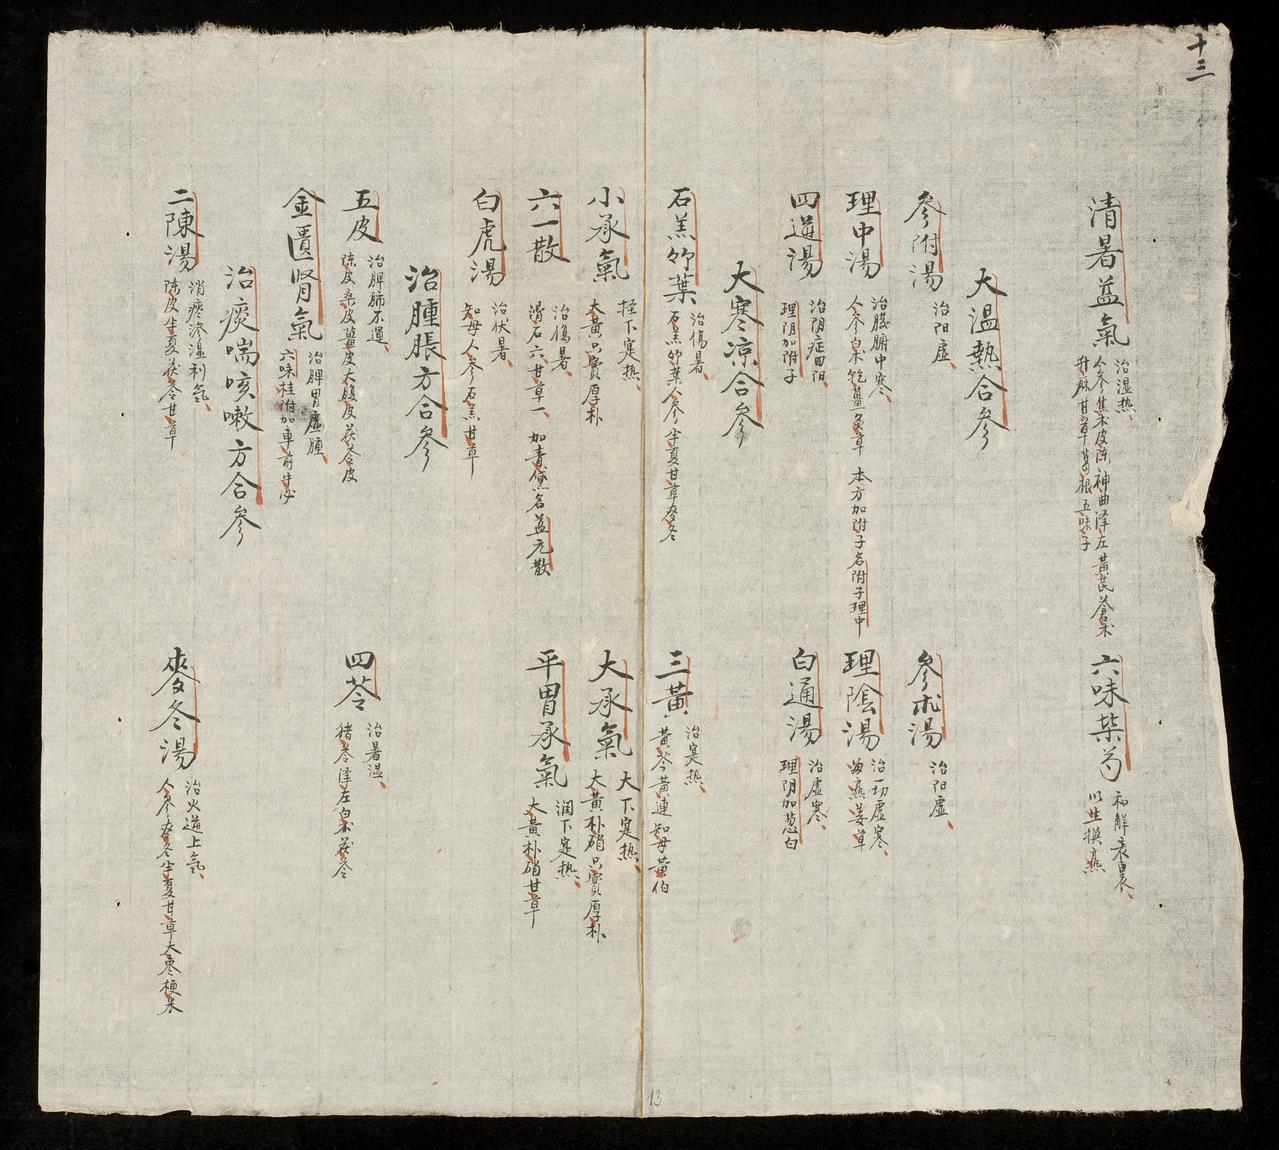 十三
清暑益氣
治湿热
人參焦术皮陈神曲泽左黃芪蒼术
升麻甘草葛根五味子
六味柴芍
和解表裏
以生換熟
大溫熱合參
參附湯
治阳虛
參朮湯
治阳虛
理中湯
治臟腑中寒
人參白术乾薑炙草 本方加附子名附子理中
理陰湯
治一切虛寒
歸熟姜草
四逆湯
治阴症回阳
理阴加附子
白通湯
治虛寒
理阴加葱白
大寒凉合參
石羔竹葉
治傷暑
石羔竹葉人參半夏甘草麥冬
三黃
治寔热
黃芩黃連知母黃伯
小承氣
輕下寔热
大黃只實厚朴
大承氣
大下寔热
大黃朴硝只實厚朴
六一散
治傷暑
滑石六甘草一 加青黛名益元散
平胃承氣
润下寔热
大黃朴硝甘草
白虎湯
治伏暑
知母人參石羔甘草
治腫脹方合參
五皮
治脾肺不運
陈皮桑皮薑皮大腹皮茯苓皮
四苓
治暑湿
豬苓泽左白术茯苓
金匱肾氣
治脾胃虛腫
六味桂附加車前牛必
治痰喘咳嗽方合參
二陳湯
消痰滲湿利氣
陈皮半夏茯苓甘草
麥冬湯
治火逆上氣
人參麥冬半夏甘草大枣梗米
13